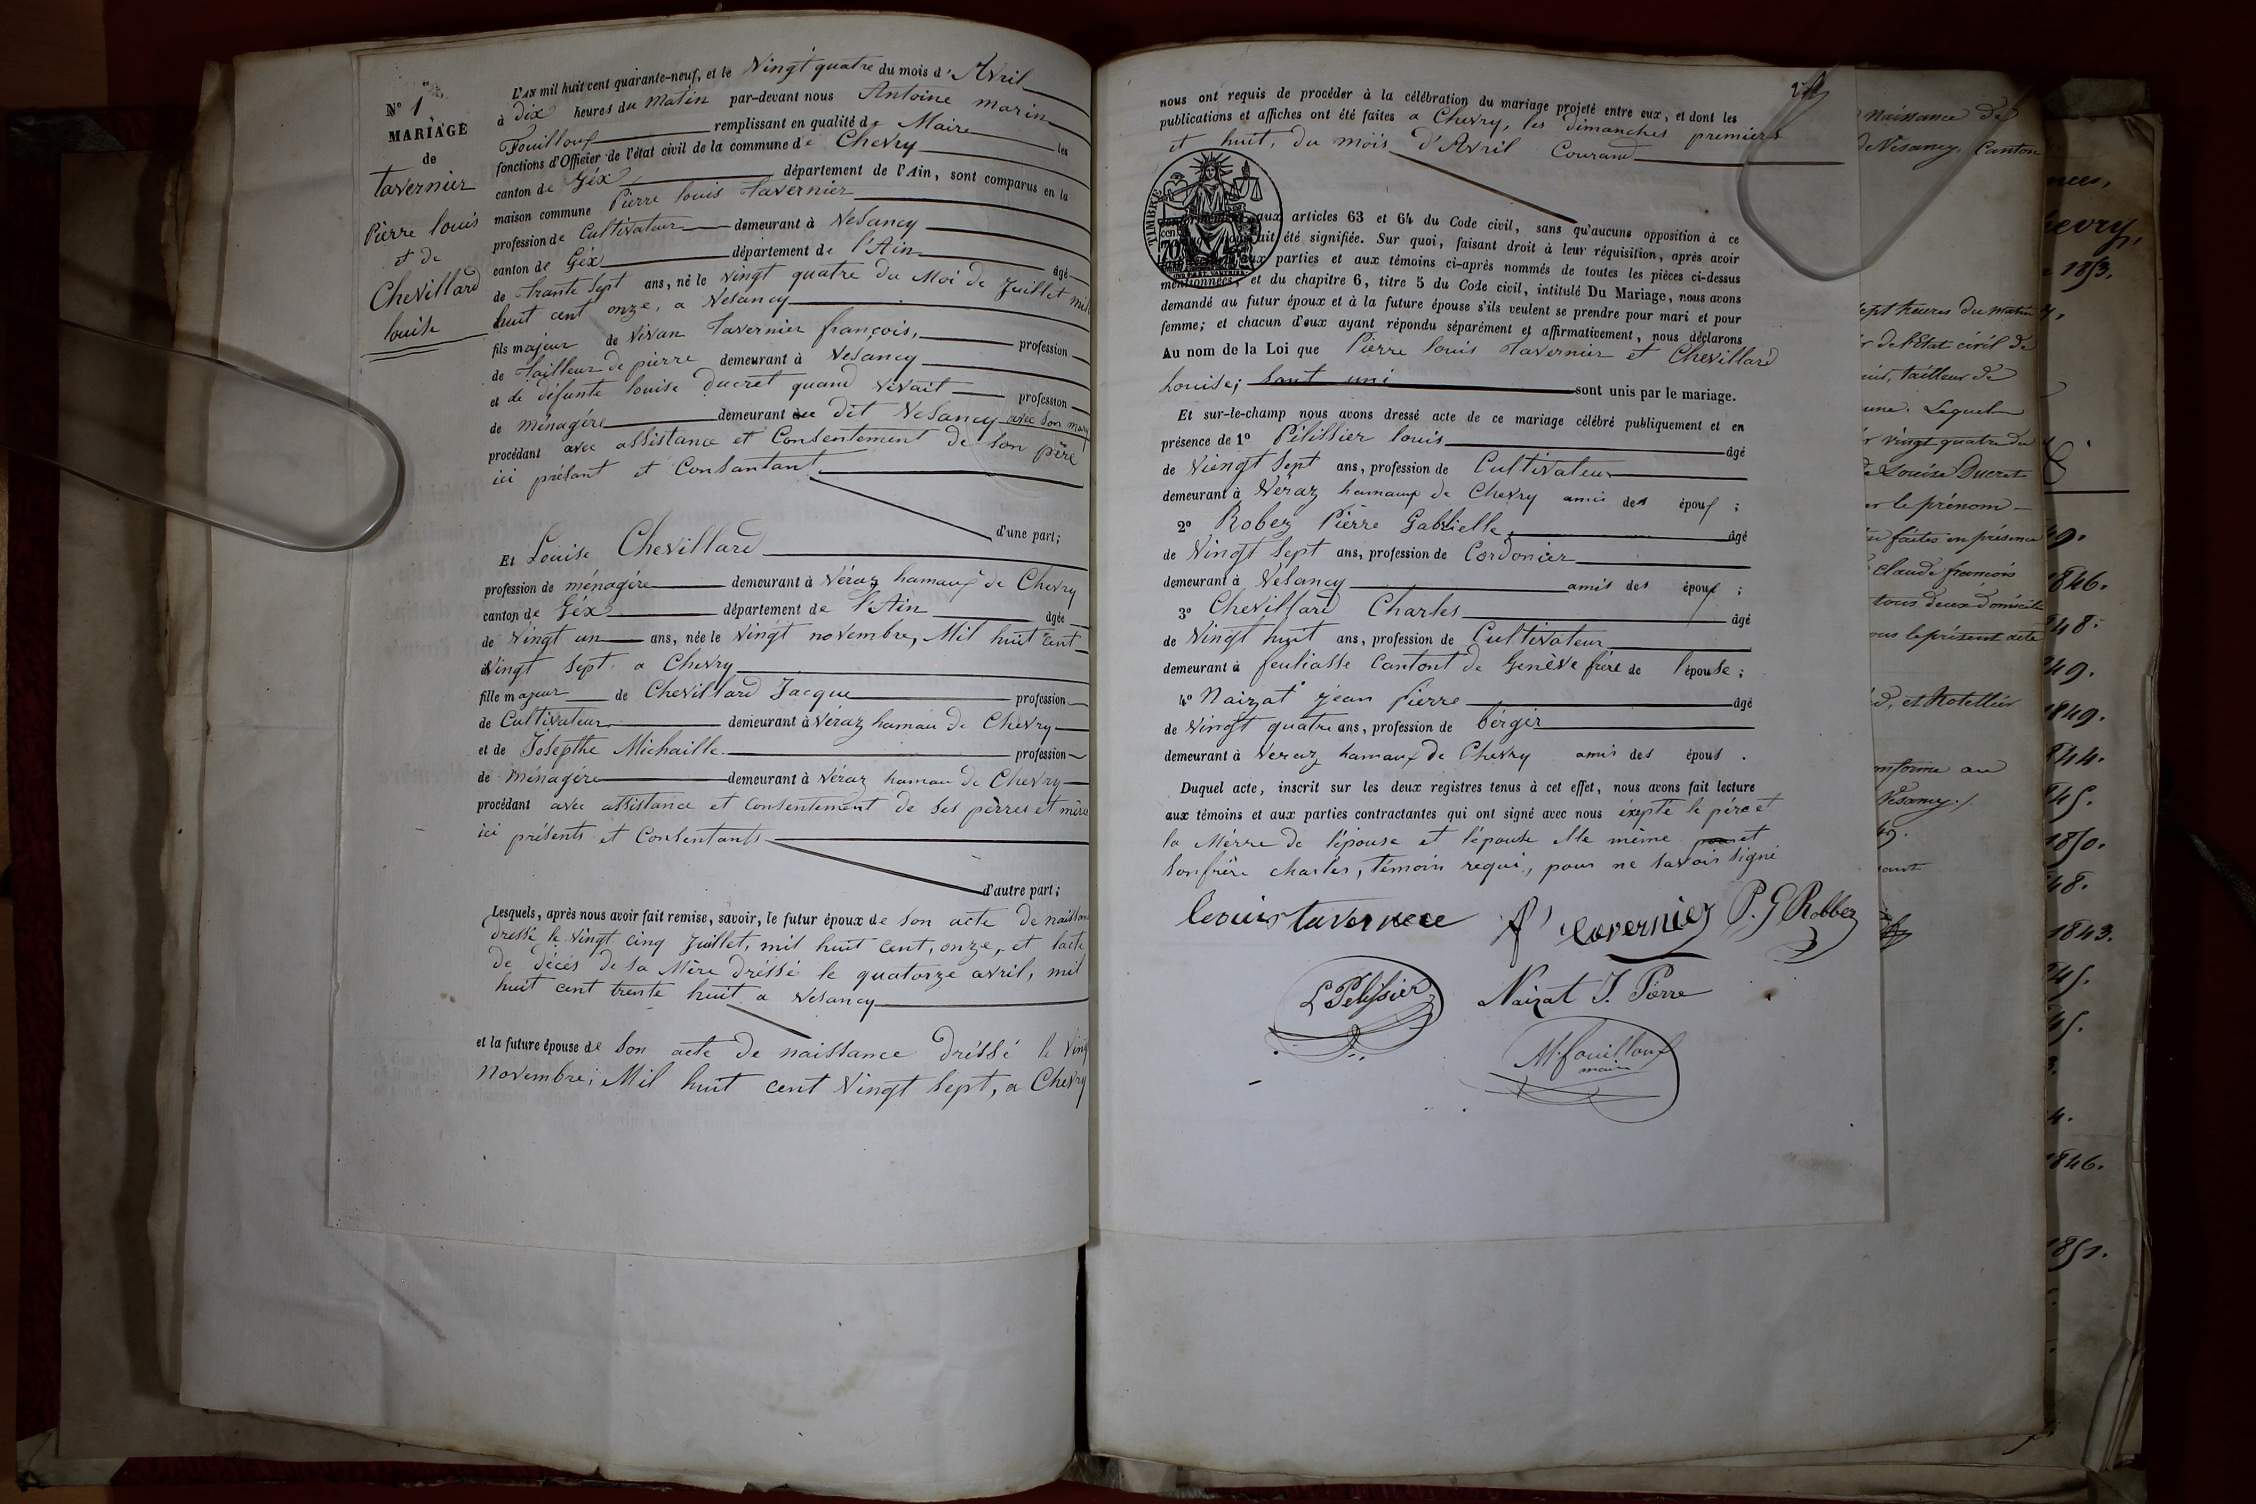 N° 1
MARIAGE
de
Tavernier
Pierre louis
et de
Chevillard
louise
L'AN mil huit cent quarante-neuf, et le Vingt quatre du mois d'Avril
à Dix heures du Matin par-devant nous Antoine marin
Fouilloux remplissant en qualité de Maire les
fonctions d'Officier de l'état civil de la commune de Chevry
canton de Géx département de l'Ain, sont comparus en la
maison commune Pierre louis Tavernier
profession de Cultivateur demeurant à Vesancy
canton de Géx département de l'Ain âgé
de trante sept ans, né le vingt quatre du Moi de Juillet mil
huit cent onze, a Vesancy
fils majeur de Vivan Tavernier françois, profession
de Tailleur de pierre demeurant à Vesancy
et de défunte louise Ducret quand vivait profession
de ménagére demeurant au dit Vesancy avec son mari
procédant avec assistance et Consentement de son père
ici présant et Consantant
d'une part;
Et Louise Chevillard
profession de ménagére demeurant à Véraz hamaux de Chevry
canton de Géx département de l'Ain âgée
de vingt un ans, née le vingt novembre, Mil huit cent
Vingt sept a Chevry
fille majeur de Chevillard Jacque profession
de Cultivateur demeurant à Véraz hamau de Chevry
et de Josepthe Michaille profession
de ménagére demeurant à Véraz hamau de Chevry
procédant avec assistance et consentement de ses pèrres et mère
ici présents et Consentants
d'autre part;
Lesquels, après nous avoir fait remise, savoir, le futur époux de son acte de naissan
dressé le vingt cinq Juillet, mil huit cent, onze, et l'acte
de décés de sa Mère dréssé le quatorze avril, mil
huit cent trente huit a Vesancy
et la future épouse de son acte de naissance dréssé le Ving
novembre; Mil huit cent Vingt sept, a Chevry
nous ont requis de procéder à la célébration du mariage projeté entre eux, et dont les
publications et affiches ont été faites a Chevry, les dimanches premiers
et huit, du moïs d'Avril Courand
TIMBRE
70
aux articles 63 et 64 du Code civil, sans qu'aucune opposition à ce
ait été signifiée. Sur quoi, faisant droit à leur réquisition, après avoir
aux parties et aux témoins ci-après nommés de toutes les pièces ci-dessus
mentionnées, et du chapitre 6, titre 5 du Code civil, intitulé Du Mariage, nous avons
demandé au futur époux et à la future épouse s'ils veulent se prendre pour mari et pour
femme; et chacun d'eux ayant répondu séparément et affirmativement, nous déclarons
Au nom de la Loi que Pierre louis Tavernier et Chevillard
Louise; sont uni sont unis par le mariage.
Et sur-le-champ nous avons dressé acte de ce mariage célébré publiquement et en
présence de 1° Pélissier louis âgé
de Viengt sept ans, profession de Cultivateur
demeurant à Véraz hamaux de Chevry amis des époux ;
2° Robez Pierre Gabrielle, âgé
de Vingt sept ans, profession de Cordonier
demeurant à Vésancy amis des époux ;
3° Chevillard Charles âgé
de Vingt huit ans, profession de Cultivateur
demeurant à feuliasse Cantont de Genève frère de l'épouse ;
4° Naizat jean Pierre âgé
de Vingt quatre ans, profession de bérger
demeurant à Veraz hamaux de Chevry amis des épous .
Duquel acte, inscrit sur les deux registres tenus à cet effet, nous avons fait lecture
aux témoins et aux parties contractantes qui ont signé avec nous éxepté le père et
la Mérre de l'épouse et l'épouse Elle même et
son frère charles, témoin requi, pour ne savoir signé
Louis taverniee f. taverniez P. G Robbez
L Pelissier Naizat J. Pierre
M. fouilloux
maire
naissance de
de Vésancy, Canton
sept heures du matin
de l'Etat civil de
tailleur de
Lequel
vingt quatre du
de Louise Ducret
le prénom
faites en présence
claude françois
tous deux domicilié
le présent acte
et Hotellier
conforme au
Vésancy.
Chevry,
1853.
49.
1846.
48.
49.
1849.
44.
45.
1850.
48.
1843.
45.
45.
1846.
1851.